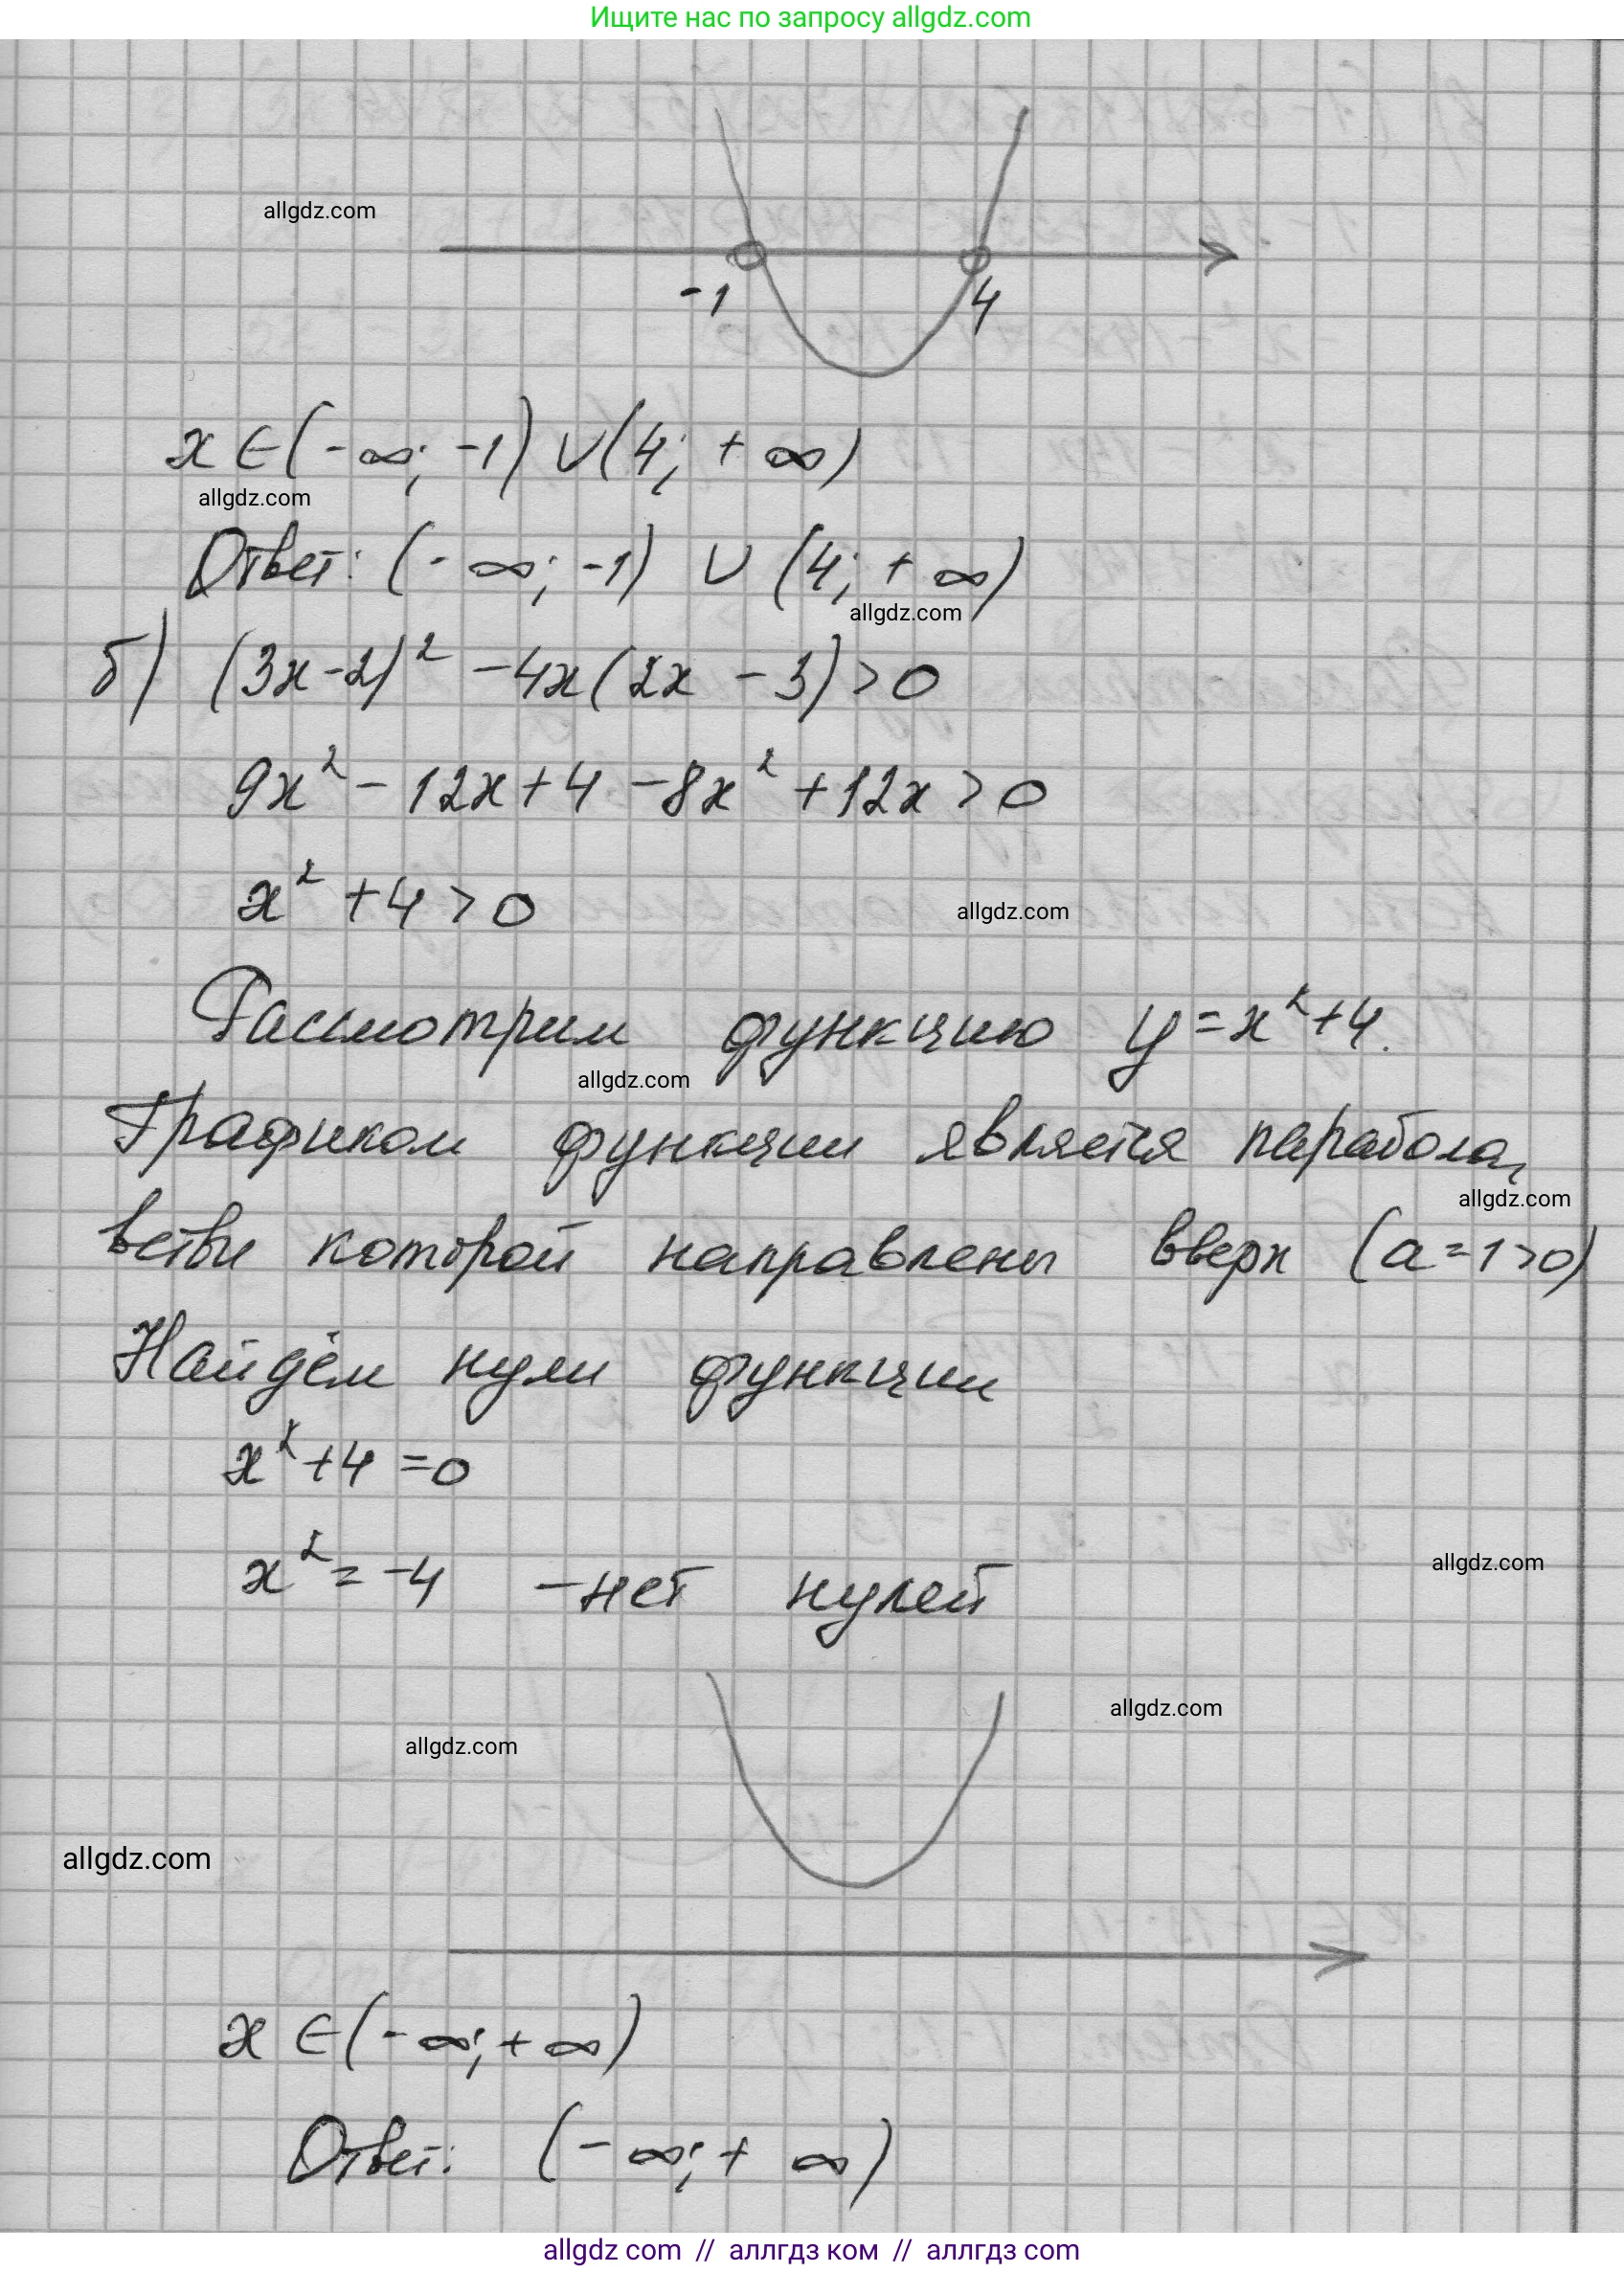 Ищите нас по запросу allgdz.com
allgdz.com
-1
4
x ∈ (-∞; -1) ∪ (4; +∞)
allgdz.com
Ответ: (-∞; -1) ∪ (4; +∞)
allgdz.com
б) (3x-2)² -4x(2x - 3) > 0
9x² - 12x + 4 - 8x² + 12x > 0
x² + 4 > 0
allgdz.com
Рассмотрим функцию y = x² + 4.
allgdz.com
Графиком функции является парабола,
allgdz.com
ветви которой направлены вверх (a = 1 > 0)
Найдём нули функции
x² + 4 = 0
x² = -4 - нет нулей
allgdz.com
allgdz.com
allgdz.com
allgdz.com
x ∈ (-∞; +∞)
Ответ: (-∞; +∞)
allgdz com // аллгдз ком // аллгдз com